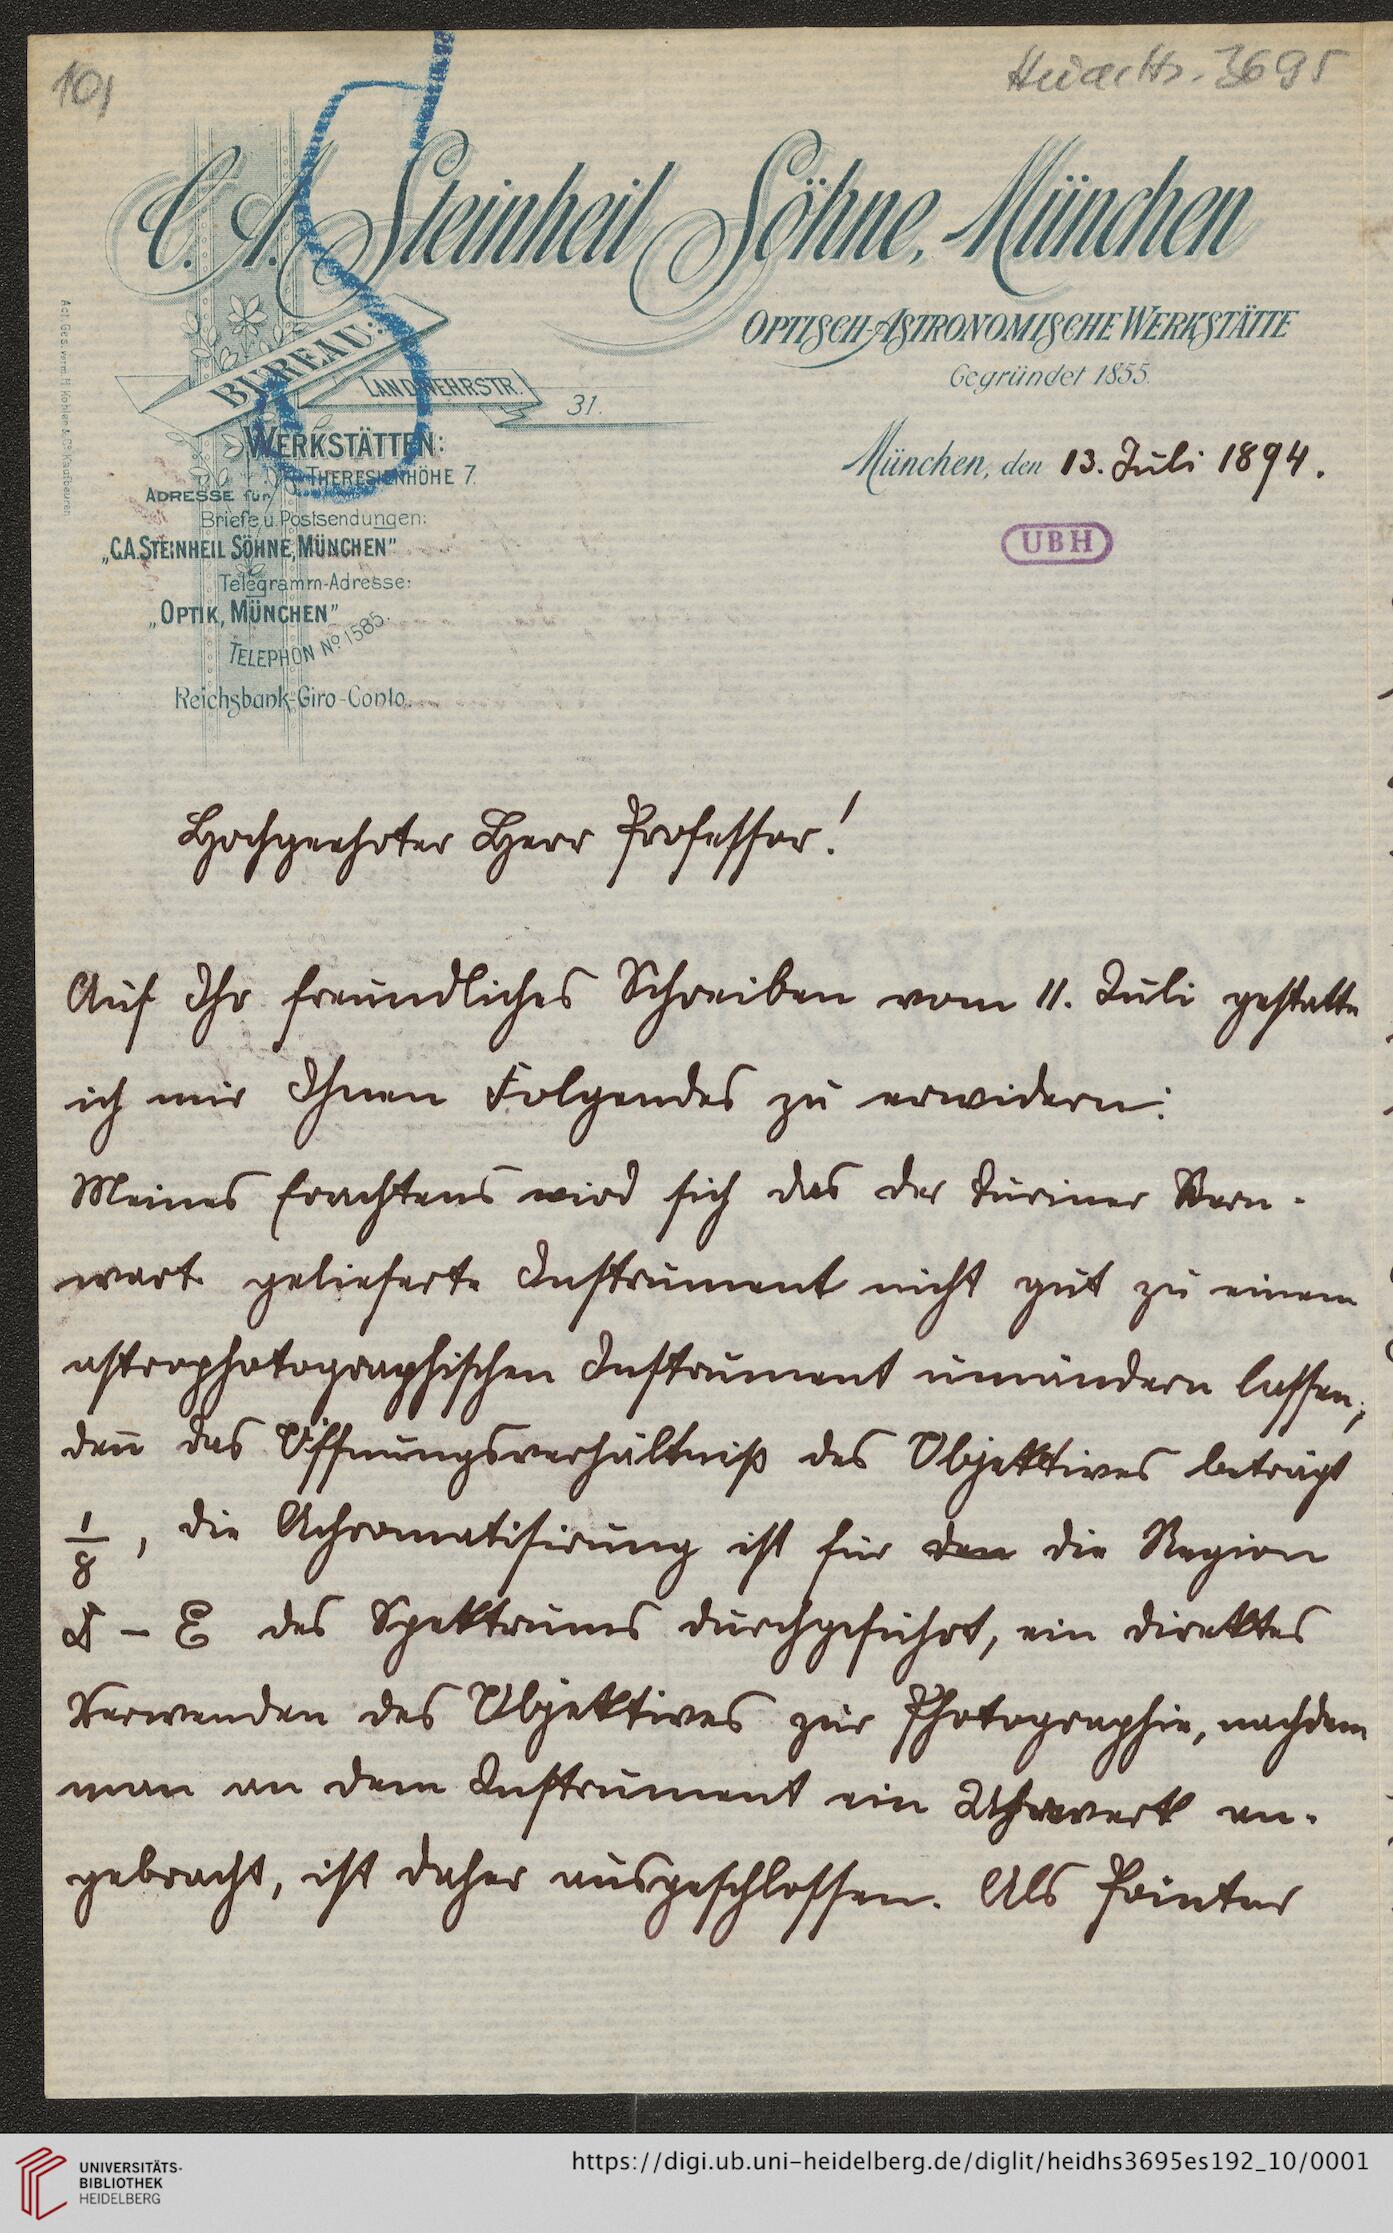 10)
Heid. Hs. 3695
C. A. Steinheil Söhne, München
OPTISCH-ASTRONOMISCHE WERKSTÄTTE
Gegründet 1855.
BUREAU:
LANDWEHRSTR. 31.
WERKSTÄTTEN:
THERESIENHÖHE 7.
ADRESSE für
Briefe u. Postsendungen:
„C.A. STEINHEIL SÖHNE, MÜNCHEN"
Telegramm-Adresse:
„OPTIK, MÜNCHEN"
TELEPHON No 1585.
Reichsbank-Giro-Conto.
Act. Ges. vorm. H. Kohler & Co. Kaufbeuren
München, den 13. Juli 1894.
UBH
Hochgeehrter Herr Professor!
Auf Ihr freundliches Schreiben vom 11. Juli gestatte
ich mir Ihnen Folgendes zu erwidern:
Meines Erachtens wird sich das der Turiner Stern-
warte gelieferte Instrument nicht gut zu einem
astrophotographischen Instrument umändern lassen;
den̄ das Öffnungsverhältniß des Objektives beträgt
1/8, die Achromatisirung ist für den die Region
– E des Spektrums durchgeführt, ein direktes
Verwenden des Objektives zur Photographie, nachdem
man an dem Instrument ein Uhrwerk an-
gebracht, ist daher ausgeschlossen. Als Pointer
UNIVERSITÄTS-
BIBLIOTHEK
HEIDELBERG
https://digi.ub.uni-heidelberg.de/diglit/heidhs3695es192_10/0001